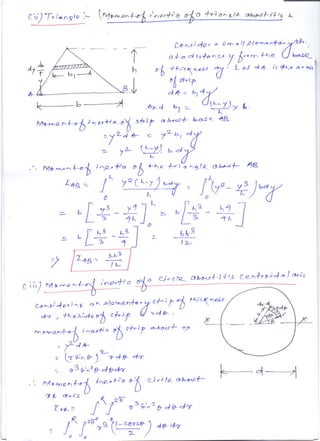 (ii) Triangle :- (Moment of inertia of a triangle about its
Consider a small elementary strip
at a distance y from the base
of thickness dy. Let dA is the area
of strip
dA = b₁ dy
And b₁ = (h-y)/h × b
Moment of inertia of strip about base AB
= y² dA = y² b₁ dy
= y² (h-y)/h b dy
∴ Moment of inertia of the triangle about AB
I_AB = ∫₀ʰ y² (h-y) b dy / h = ∫₀ʰ (y² - y³/h) b dy
= b [y³/3 - y⁴/4h]₀ʰ = b [h³/3 - h⁴/4h]
= b [h³/3 - h³/4] = bh³/12
⇒ I_AB = bh³/12
(iii) Moment of inertia of a circle about its centroidal axis
Considering an elementary strip of thickness
dr, the side of strip rdθ.
moment of inertia of strip about xx
= y² dA
= (r sinθ)² r dθ dr
= r³ sin²θ dθ dr
∴ Moment of inertia of circle about
xx axis
I_xx = ∫₀ᴿ ∫₀²π r³ sin²θ dθ dr
= ∫₀ᴿ ∫₀²π r³ (1-cos2θ)/2 dθ dr